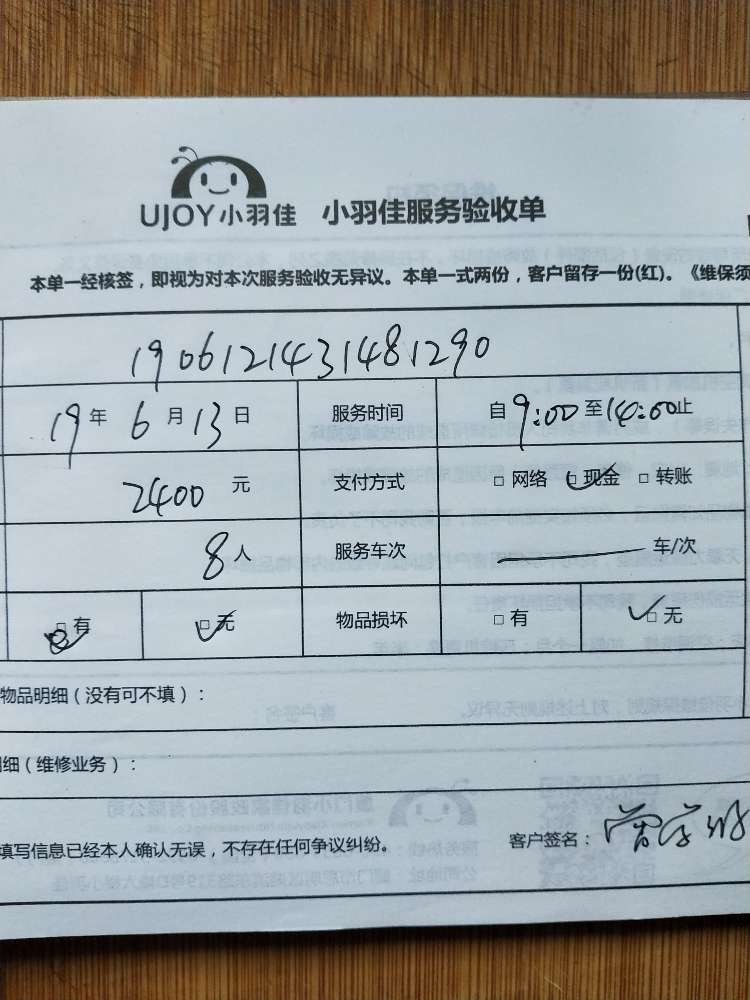 UJOY小羽佳 小羽佳服务验收单
本单一经核签，即视为对本次服务验收无异议。本单一式两份，客户留存一份(红)。《维保须
1906121431481290
19年 6月13日 服务时间 自9:00至14:00止
2400元 支付方式 □网络 □现金 □转账
8人 服务车次 车/次
□有 □无 物品损坏 □有 □无
物品明细（没有可不填）：
细（维修业务）：
填写信息已经本人确认无误，不存在任何争议纠纷。 客户签名：